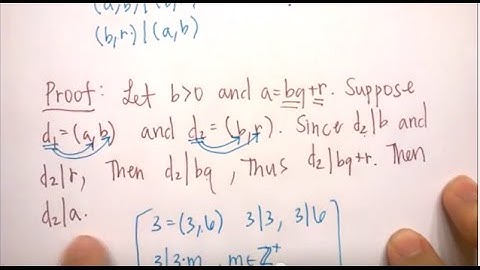 (a,b)|(b,
(b,r)|(a,b)
Proof: Let b>0 and a=bq+r. Suppose
d₁=(a,b) and d₂=(b,r). Since d₂|b and
d₂|r, Then d₂|bq, Thus d₂|bq+r. Then
d₂|a.
3=(3,6) 3|3, 3|6
3|3·m, m∈ℤ⁺